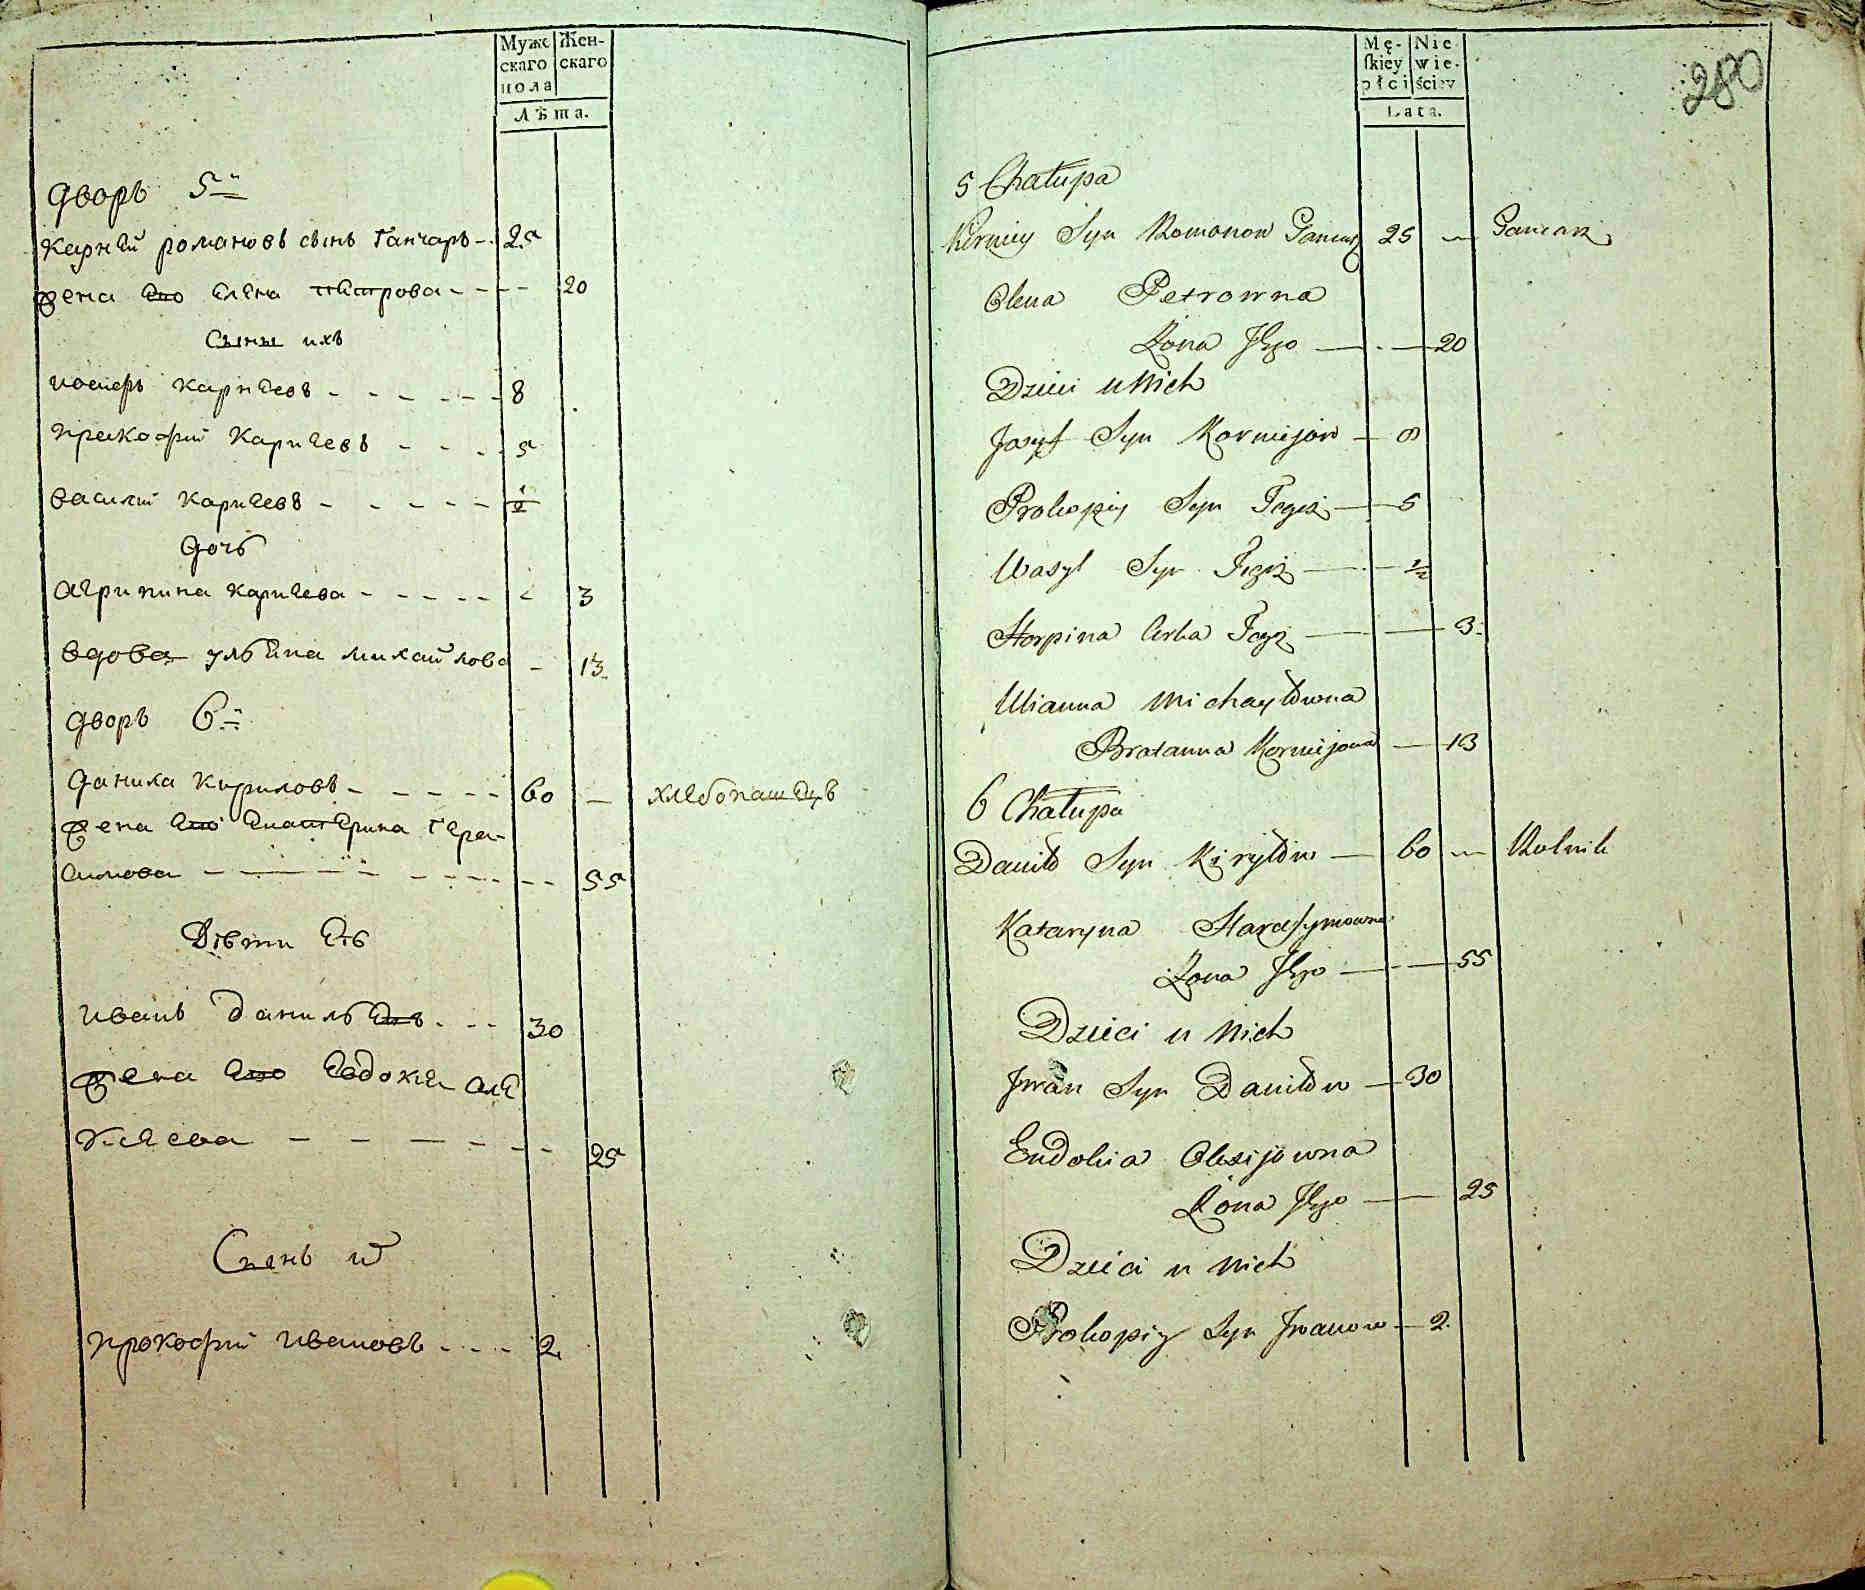 Муже Жен-
скаго скаго
пола
Лѣта.
дворъ 5й
карней романовъ сынъ ганчаръ - 25
жена его елена петрова - - - 20
Сыны ихъ
иосифъ карнеевъ - - - - - - 8
прокофий карнеевъ - - - - 5
василий карнеевъ - - - - - 1/2
дочь
агрипина карнеева - - - - - 3
вдова ульяна михайлова - 13
дворъ 6й
данила кириловъ - - - - - 60 — хлебопашецъ
жена его екатерина гера-
симова - - - - - - - - 55
Дѣти его
иванъ данильевъ - - - 30
жена его евдокея але
ксеева - - - - - - - 25
Сынъ их
прокофий ивановъ - - - - 2
Mę- Nie
skiey wie-
płci ściey
Lata.
280
5 Chałupa
Kirniey Syn Romanow Gancarz 25 — Gancarz
Olena Petrowna
Żona Jego — — 20
Dzieci u Nich
Josyf Syn Kornijow — 8
Prokopiy Syn Tegoż — 5
Wasyl Syn Tegoż — 1/2
Horpina Crka Tegoż — — 3
Ulianna Michayłowna
Bratanna Kornijowa — 13
6 Chałupa
Daniło Syn Kiryłow — 60 — Rolnik
Kataryna Harasymowna
Żona Jego — — 55
Dzieci u Nich
Jwan Syn Daniłow — 30
Eudokia Olexijowna
Żona Jego — 25
Dzieci u Nich
Prokopiy Syn Jwanow — 2